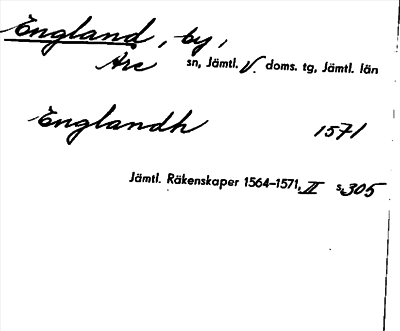 England, by,
Åre sn, Jämtl. V. doms. tg, Jämtl. län
Englandh 1571
Jämtl. Räkenskaper 1564–1571, II s. 305